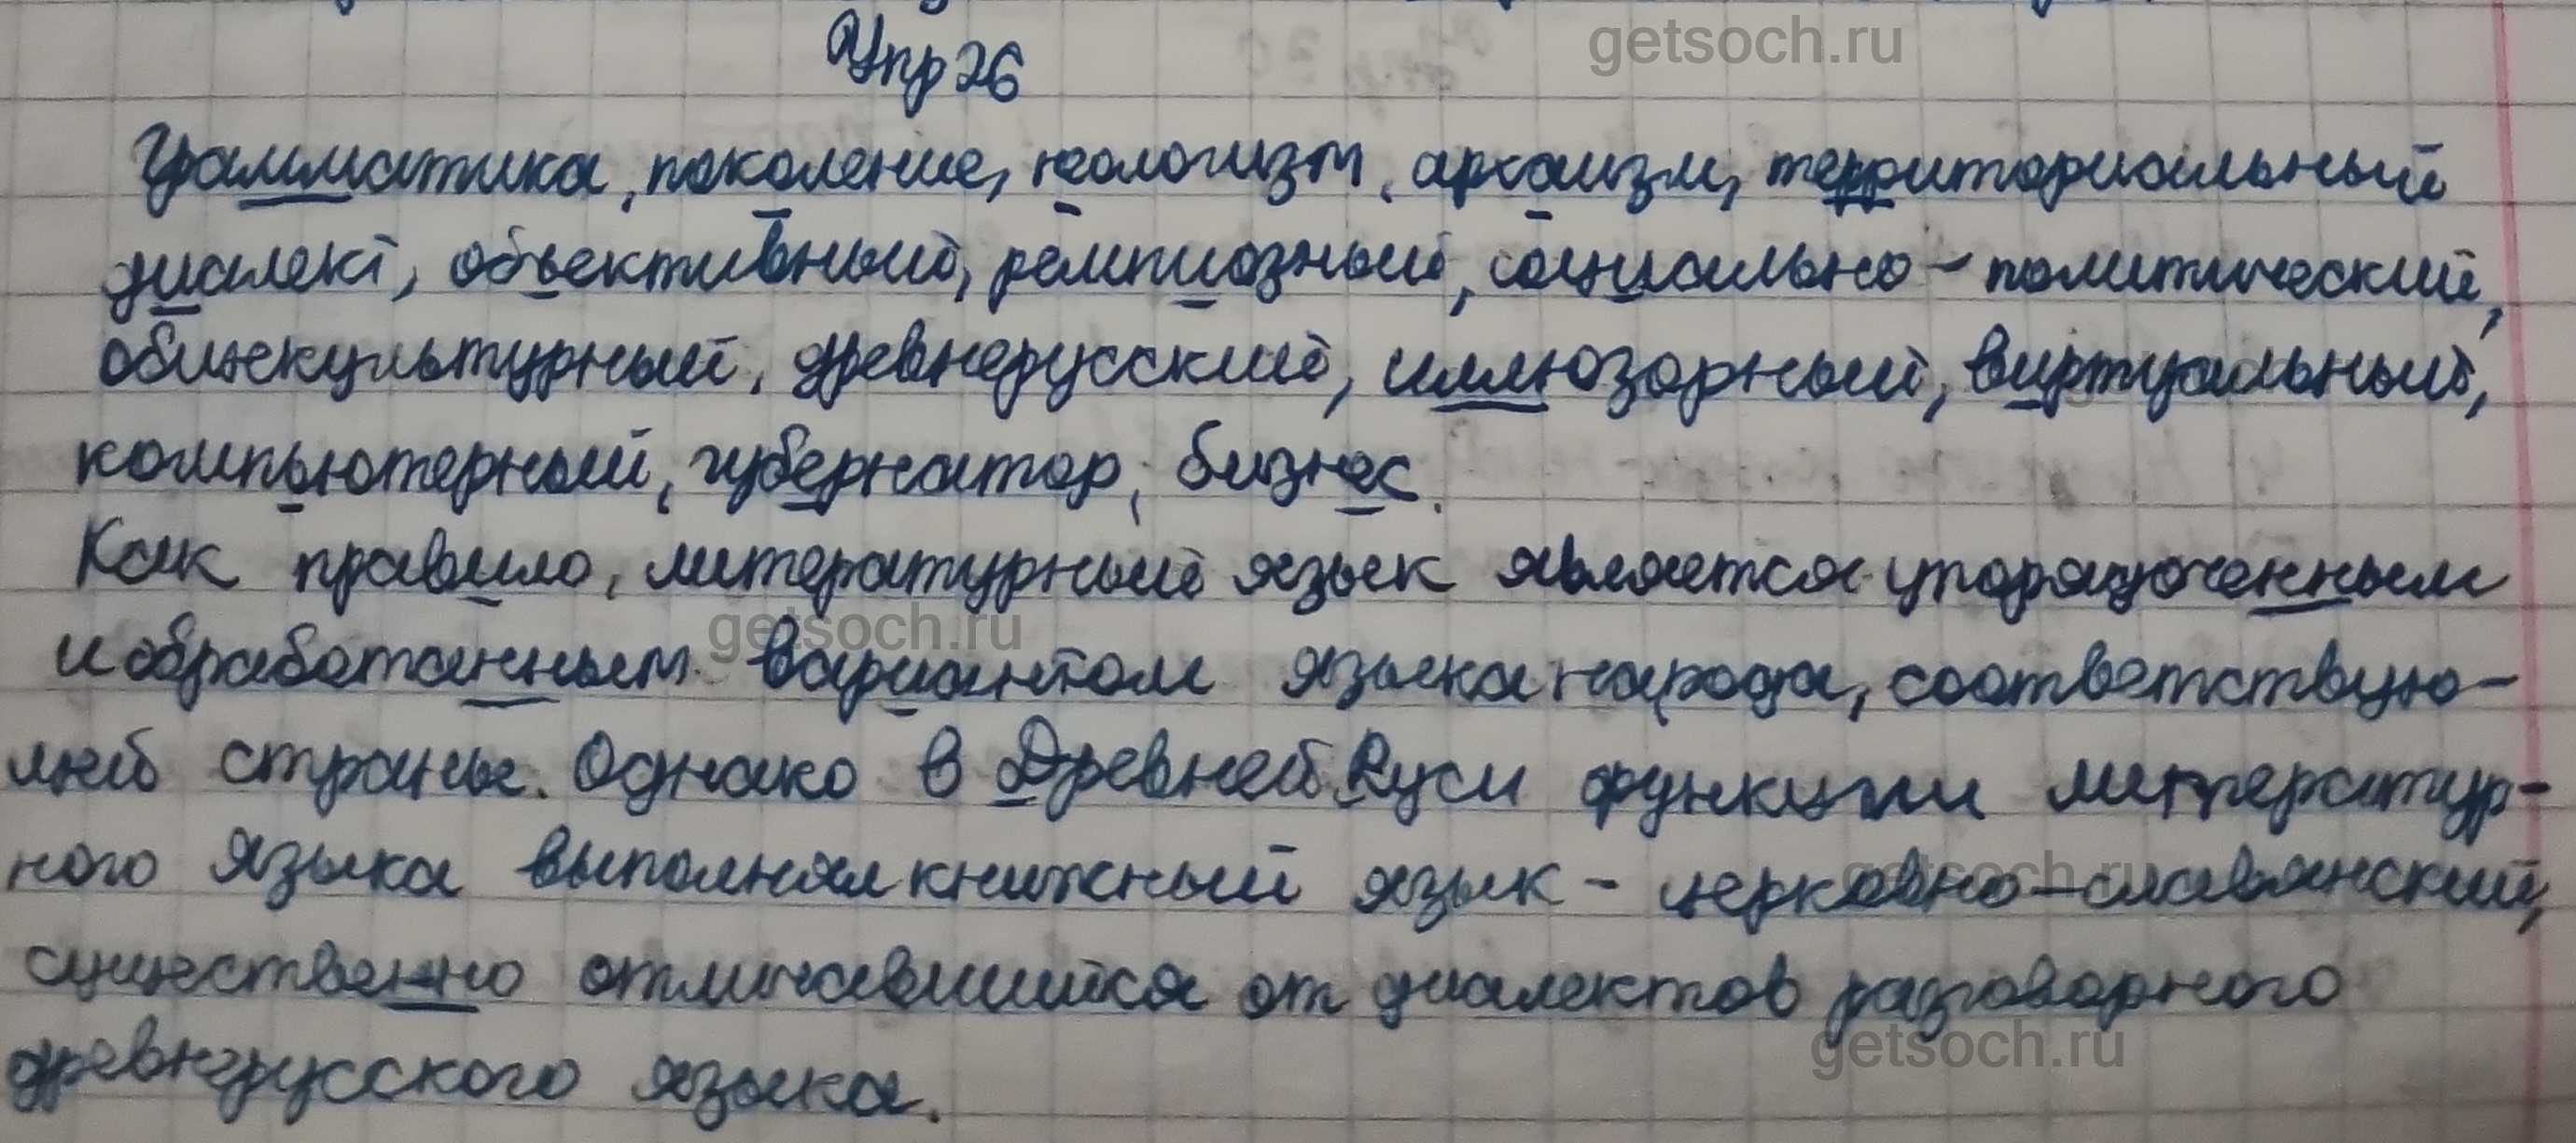 getsoch.ru
Упр 26
Грамматика, поколение, неологизм, архаизм, территориальный
диалект, объективный, религиозный, социально-политический,
общекультурный, древнерусский, иллюзорный, виртуальный,
компьютерный, губернатор, бизнес.
Как правило, литературный язык является упорядоченным
getsoch.ru
и обработанным вариантом языка народа, соответствую-
щей страны. Однако в Древней Руси функции литератур-
ного языка выполнял книжный язык - церковно-славянский,
getsoch.ru
существенно отличавшийся от диалектов разговорного
getsoch.ru
древнерусского языка.